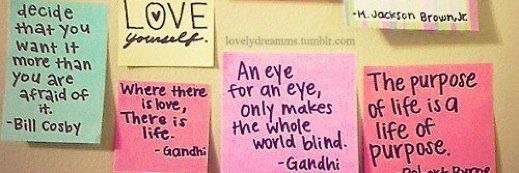 decide
that you
want it
more than
you are
afraid of
it.
-Bill Cosby
LOVE
yourself.
Where there
is love,
There is
life.
-Gandhi
lovelydreamms.tumblr.com
An eye
for an eye,
only makes
the whole
world blind.
-Gandhi
-H. Jackson Brown, Jr.
The purpose
of life is a
life of
purpose.
Robert Byrne